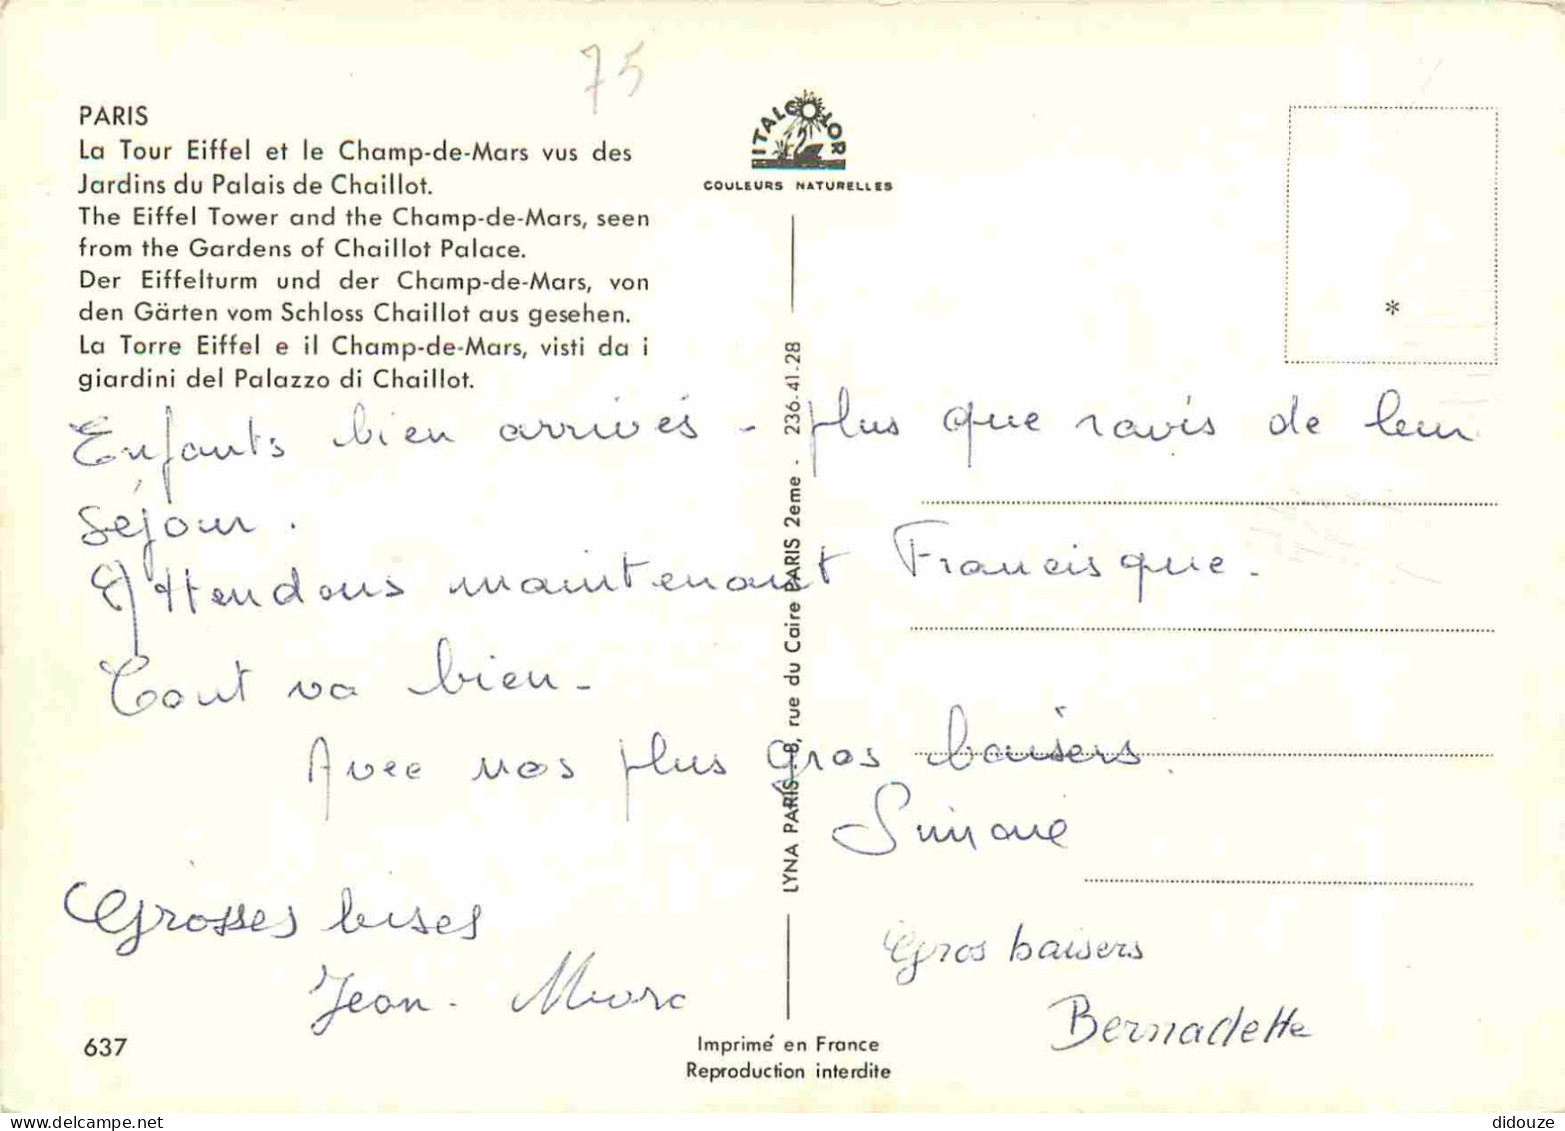 75
PARIS
La Tour Eiffel et le Champ-de-Mars vus des
Jardins du Palais de Chaillot.
The Eiffel Tower and the Champ-de-Mars, seen
from the Gardens of Chaillot Palace.
Der Eiffelturm und der Champ-de-Mars, von
den Gärten vom Schloss Chaillot aus gesehen.
La Torre Eiffel e il Champ-de-Mars, visti da i
giardini del Palazzo di Chaillot.
ITALCOLOR
COULEURS NATURELLES
*
LYNA PARIS - 8, rue du Caire PARIS 2eme - 236-41-28
Enfants bien arrivés - plus que ravis de leur
séjour.
Attendons maintenant Francisque.
Tout va bien -
Avec nos plus gros baisers.
Simone
Grosses bises
Jean-Marc
Gros baisers
Bernadette
637
Imprimé en France
Reproduction interdite
didouze